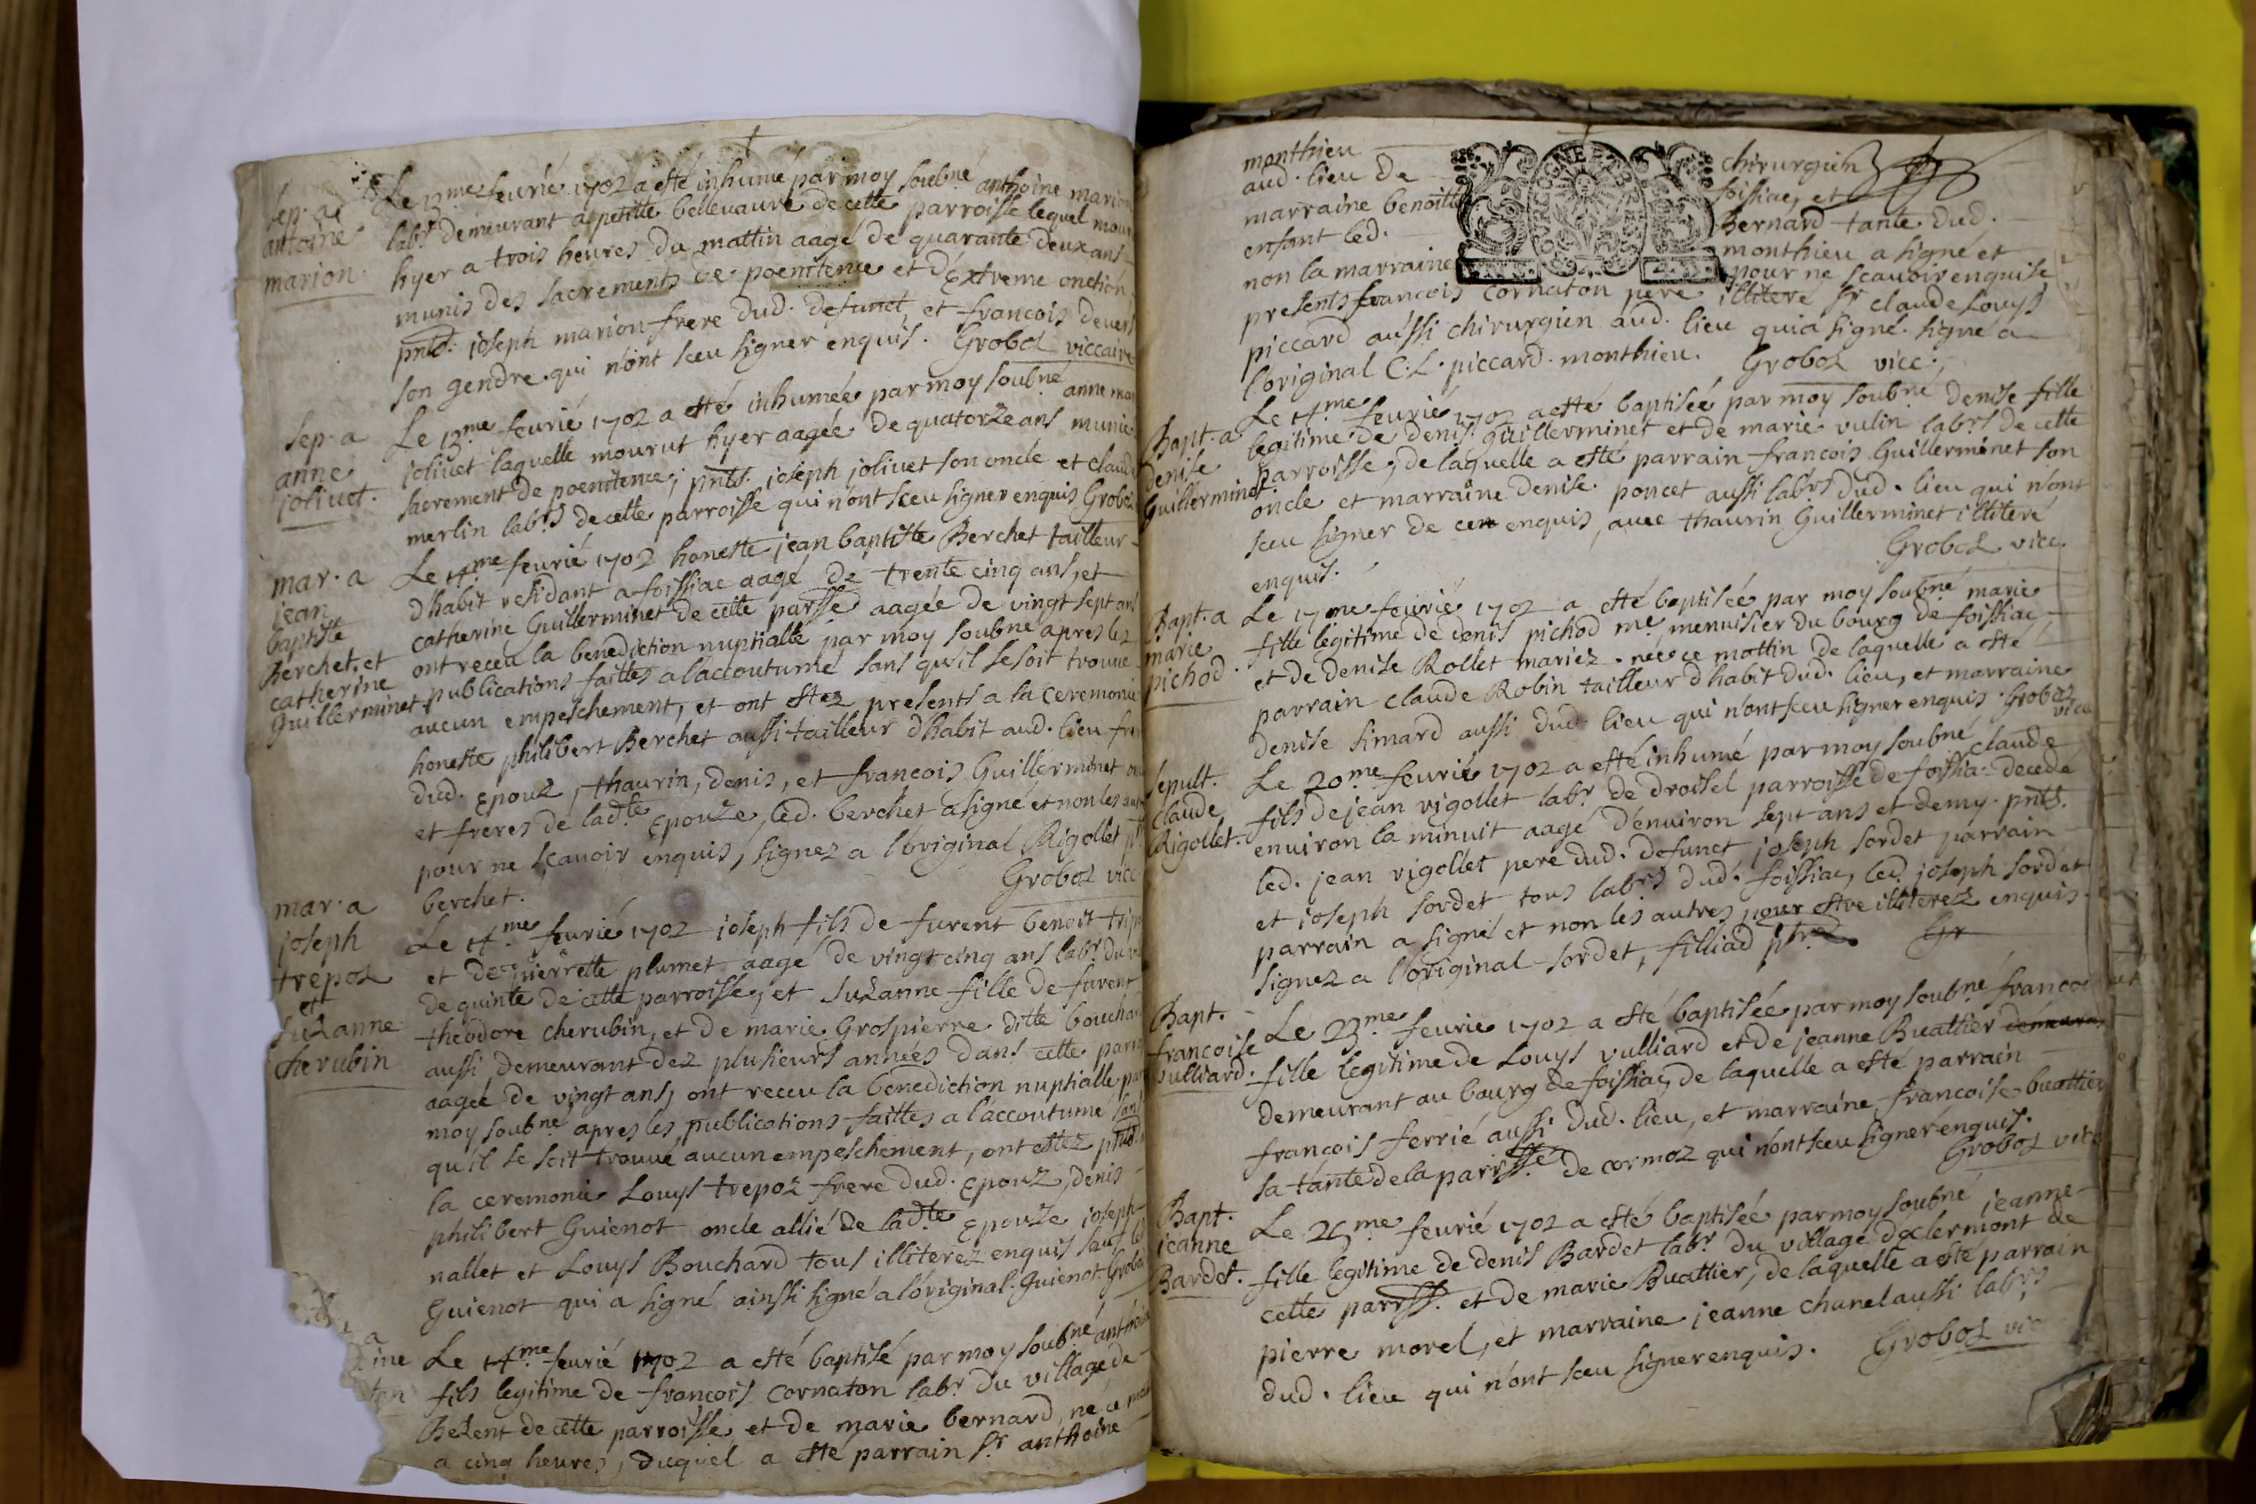 sep. a
antoine
marion.
Le 13.me feurié 1702 a esté inhumé par moy soubné anthoine marion
labr. demeurant a petitte bellevaure de cette parroisse lequel mour
hyer a trois heures du mattin aagé de quarante deux ans
munis des sacrements de poenitence et d'éxtreme onction
pnts. ioseph marion frere dud. defunct, et francois devers
son gendre qui n'ont sceu signer enquis. Groboz viccaire
sep. a
anne
jolivet.
Le 13.me feurié 1702 a esté inhumée par moy soubné anne mar
jolivet laquelle mourut hyer aagée de quatorze ans munie
sacrement de poenitence; pnts. ioseph jolivet son oncle et claude
merlin labrs de cette parroisse qui n'ont sceu signer enquis Groboz
mar. a
jean
baptiste
Berchet, et
catherine
Guillerminet
Le 14.me feurié 1702 honeste jean baptiste Berchet tailleur
d'habit residant a foissiac aagé de trente cinq ans, et
catherine Guillerminet de cette parsse aagée de vingt sept ans
ont receu la benediction nuptialle par moy soubné apres les
publications faittes a l'accoutumé sans qu'il se soit trouvé
aucun empeschement, et ont estez presents a la ceremonie
honeste philibert Berchet aussi tailleur d'habit aud. lieu frere
dud. Epouz, thaurin, denis, et francois Guillerminet
et freres de ladte Epouze, led. berchet a signé et non les
pour ne scavoir enquis, signez a l'original Rigollet
berchet. Groboz vicc
mar. a
joseph
trepoz
et
suzanne
cherubin
Le 14.me feurié 1702 ioseph fils de furent benoit
et de pierrette plumet aagé de vingt cinq ans labr. du
de quinte de cette parroisse, et suzanne fille de furent
théodore cherubin, et de marie Grospierre ditte bouchard
aussi demeurant dez plusieurs années dans cette
aagée de vingt ans, ont receu la benediction nuptialle par
moy soubné apres les publications faittes a l'accoutumé sans
qu'il se soit trouvé aucun empeschement, ont estez pnts
la ceremonie Louys trepoz frere dud. Epouz, denis
philibert Guienot oncle allié de ladte Epouze ioseph
nallet et Louys Bouchard tous illiterez enquis sauf led
Guienot qui a signé ainssi signé a l'original. Guienot. Groboz
a
ine
ton
Le 14.me feurié 1702 a esté baptisé par moy soubné anthoine
fils legitime de francois cornaton labr. du village de
Bezent de cette parroisse, et de marie bernard, né ce
a cinq heures, duquel a esté parrain sr. anthoine
monthieu chirurgien
aud. lieu de foissiac, et
marraine benoitte Bernard tante dud.
enfant led. monthieu a signé et
non la marraine pour ne scavoir enquise
presents francois cornaton pere illiteré sr claude Louys
piccard aussi chirurgien aud. lieu qui a signé. signé a
l'original C. L. piccard. monthieu. Groboz vicc.
Bapt. a
denise
Guillerminet.
Le 14.me feurié 1702 a esté baptisée par moy soubné denise fille
legitime de denis guillerminet et de marie vulin labrs de cette
parroisse, de laquelle a esté parrain francois Guillerminet son
oncle et marraine denise poncet aussi labrs dud. lieu qui n'ont
sceu signer de ce enquis, avec thaurin Guillerminet illiteré
enquis. Groboz vicc.
Bapt. a
marie
pichod.
Le 17.me feurié 1702 a esté baptisée par moy soubné marie
fille legitime de denis pichod me. menuisier du bourg de foissiac
et de denise Rollet mariez. née ce mattin de laquelle a esté
parrain claude Robin tailleur d'habit dud. lieu, et marraine
denise simard aussi dud. lieu qui n'ont sceu signer enquis. Groboz
vicc
sepult.
claude
Rigollet.
Le 20.me feurié 1702 a esté inhumé par moy soubné claude
fils de jean rigollet labr. de droisel parroisse de foissia. decedé
environ la minuit aagé d'environ sept ans et demy. pnts.
led. jean rigollet pere dud. defunct joseph sordet parrain
et joseph sordet tous labrs dud. foissiac, led. joseph sordet
parrain a signé et non les autres pour estre illiterez enquis.
signez a l'original sordet, filliad ptre. Gr
Bapt.
francoise
vulliard.
Le 23.me feurié 1702 a esté baptisée par moy soubné francoise
fille legitime de Louys vulliard et de jeanne Buattier
demeurant au bourg de foissiac, de laquelle a esté parrain
francois ferrié aussi dud. lieu, et marraine francoise buattier
sa tante de la parrsse de cormoz qui n'ont sceu signer enquis.
Groboz vicc
Bapt.
jeanne
Bardet.
Le 25.me feurié 1702 a esté baptisée par moy soubné jeanne
fille legitime de denis Bardet labr. du village de clermont de
cette parrsse. et de marie Buattier, de laquelle a esté parrain
pierre morel, et marraine jeanne chanel aussi labrs
dud. lieu qui n'ont sceu signer enquis. Groboz vic